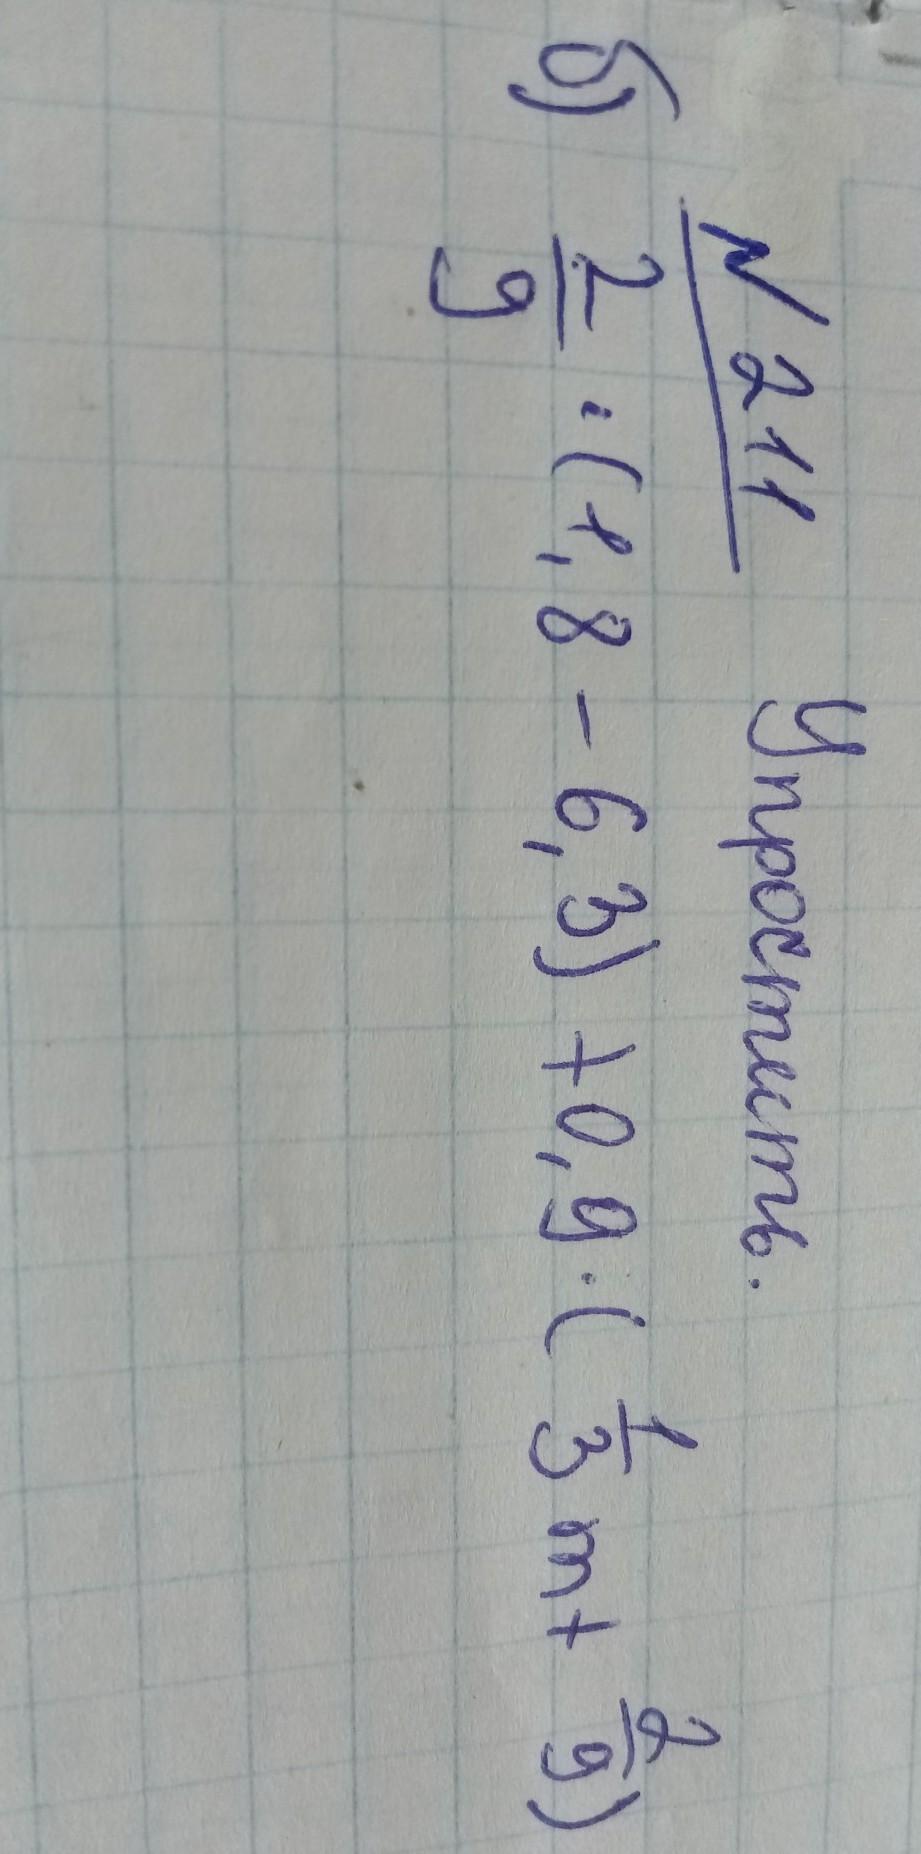 N 211 Упростить.
б) 2/9 · (1,8 - 6,3) + 0,9 · (1/3 m + 2/9)